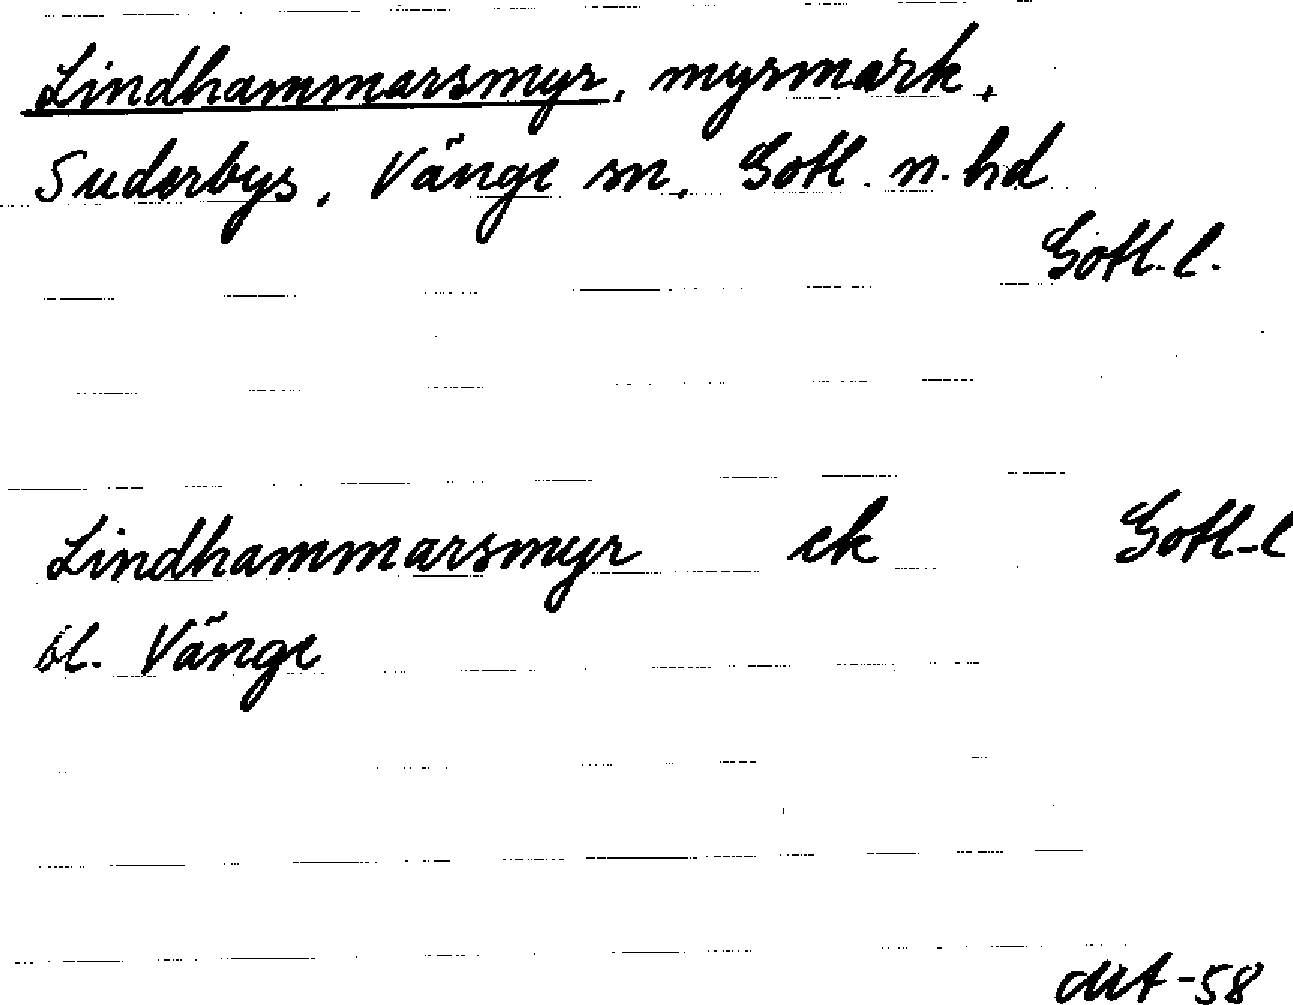 Lindhammarsmyr, myrmark,
Suderbys, Vänge sn, Gotl. n. hd
Gotl. l.
Lindhammarsmyr ek Gotl-l
bl. Vänge
-58